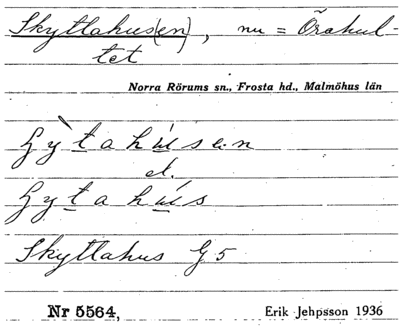 Skyttahus(en), nu = Örahul-
tet
Norra Rörums sn., Frosta hd., Malmöhus län
el.
Skyttahus G 5
Nr 5564, Erik Jehpsson 1936